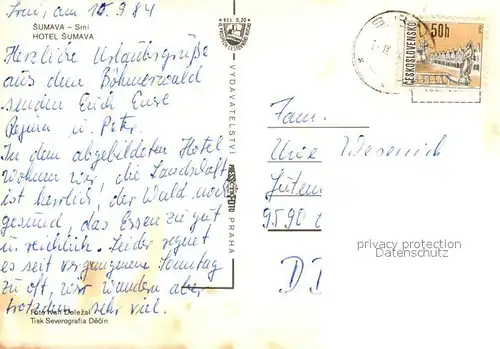 Srní, am 10.9.84
ŠUMAVA – Srní
HOTEL ŠUMAVA
Herzliche Urlaubsgrüße
aus dem Böhmerwald
senden Euch Eure
Regina u. Peter.
In dem abgebildeten Hotel
wohnen wir, die Landschaft
ist herrlich, der Wald noch
gesund, das Essen zu gut
u. reichlich. Leider regnet
es seit vergangenem Sonntag
zu oft, wir wandern aber
trotzdem sehr viel.
Foto Ivan Doležal
Tisk Severografia Děčín
Kčs 0,20
VYDAVATELSTVÍ
PRESSFOTO
PRAHA
ČESKOSLOVENSKO
50h
Fam.
Uwe
privacy protection
Datenschutz